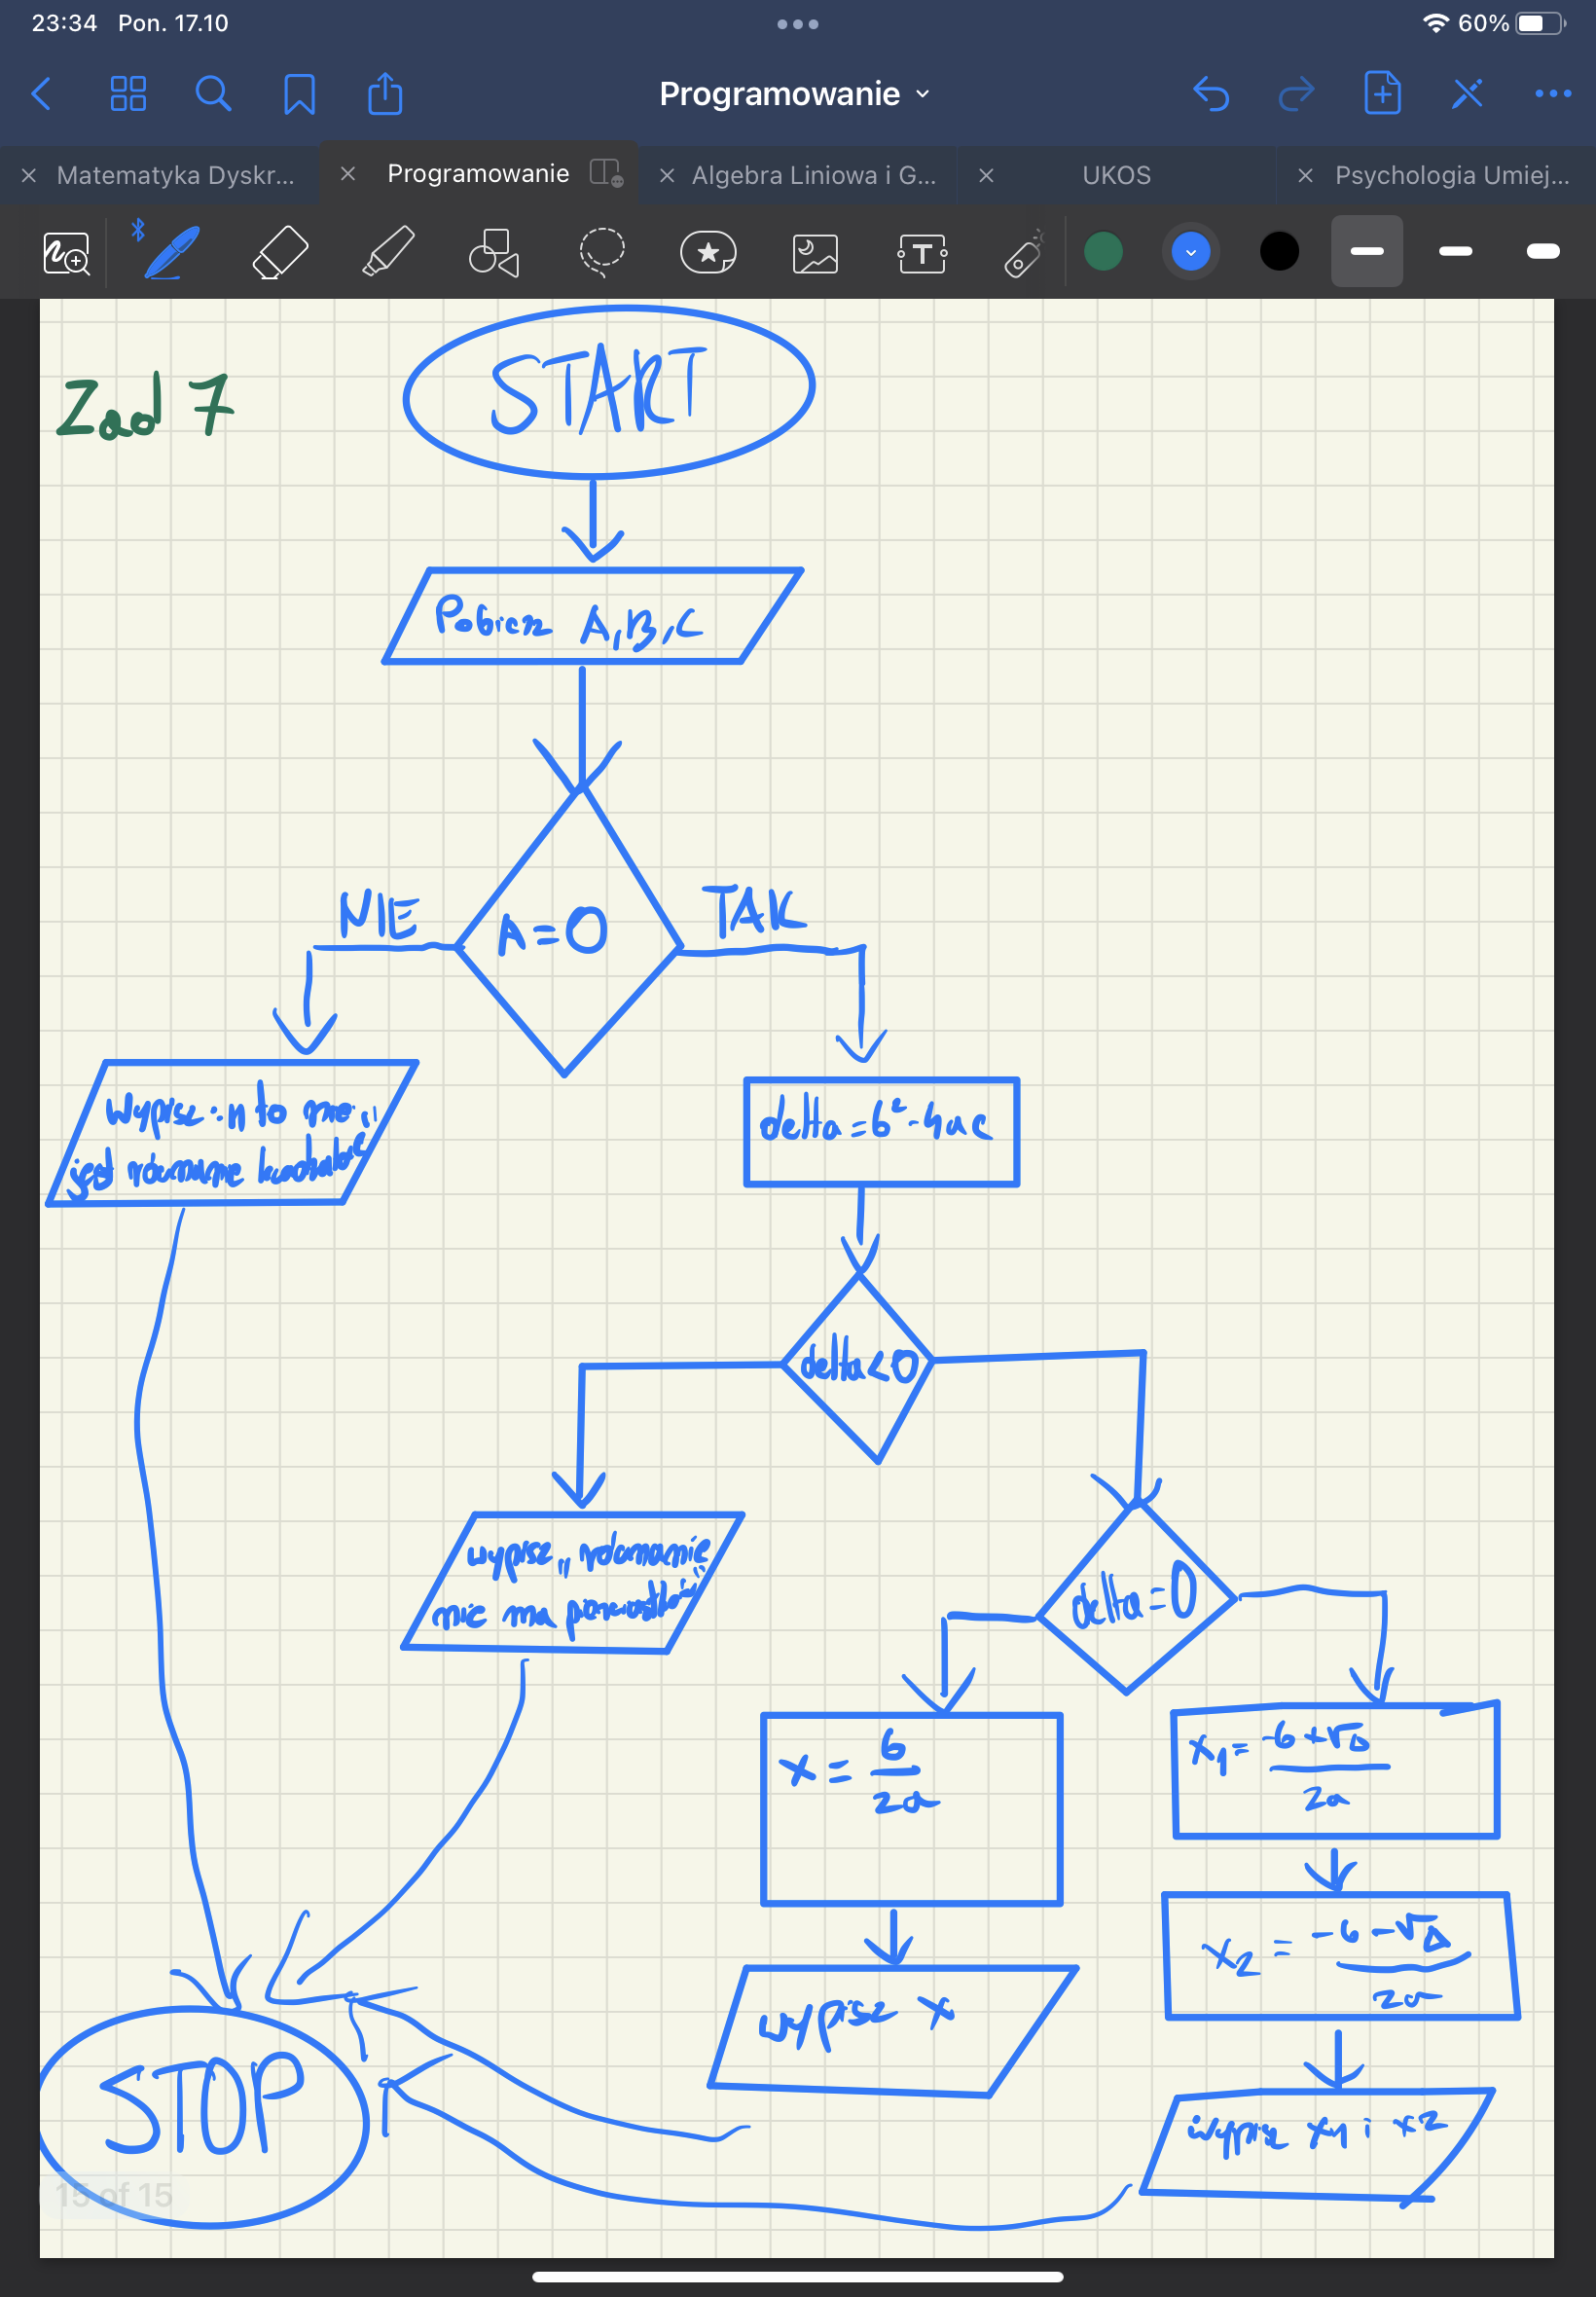 23:34 Pon. 17.10
60%
Programowanie
Matematyka Dyskr...
Programowanie
Algebra Liniowa i G...
UKOS
Psychologia Umiej...
T
Zad 7
START
Pobierz A,B,C
NIE
A=0
TAK
wypisz: "to nie
jest równanie
delta=b²-4ac
delta<0
wypisz „równanie
nie ma pierwiastków"
delta=0
x = b/2a
x1= -b+√Δ/2a
x2 = -b-√Δ/2a
wypisz x
wypisz x1 i x2
STOP
15 of 15